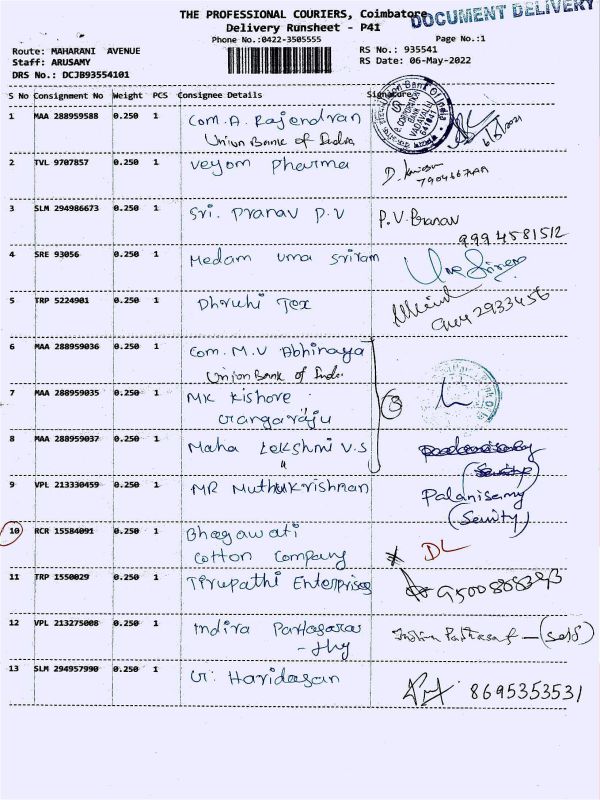 THE PROFESSIONAL COURIERS, Coimbatore
DOCUMENT DELIVERY
Delivery Runsheet - P41
Phone No.:0422-3505555 Page No.:1
Route: MAHARANI AVENUE RS No.: 935541
Staff: ARUSAMY RS Date: 06-May-2022
DRS No.: DCJB93554101
S No Consignment No Weight PCS Consignee Details Signature
1 MAA 288959588 0.250 1 Com. A. Rajendran
Union Bank of India 6/5/2021
2 TVL 9707857 0.250 1 Veyom Pharma
3 SLM 294986673 0.250 1 Sri. Pranav P.V P.V. Pranav
9994581512
4 SRE 93056 0.250 1 Medam Uma Sriram
5 TRP 5224901 0.250 1 Dhruhi Tex
6 MAA 288959036 0.250 1 Com. M.V Abhinaya
Union Bank of India
3
7 MAA 288959035 0.250 1 MK Kishore
Gangaraju
8 MAA 288959037 0.250 1 Maha Lekshmi V.S
9 VPL 213330459 0.250 1 MR Muthukrishnan Palanisamy
10 RCR 15584091 0.250 1 Bhagawati
Cotton Company DL
11 TRP 1550029 0.250 1 Tirupathi Enterprises
12 VPL 213275008 0.250 1 Indira Partasara
- thy (self)
13 SLM 294957990 0.250 1 G. Haridasan 8695353531